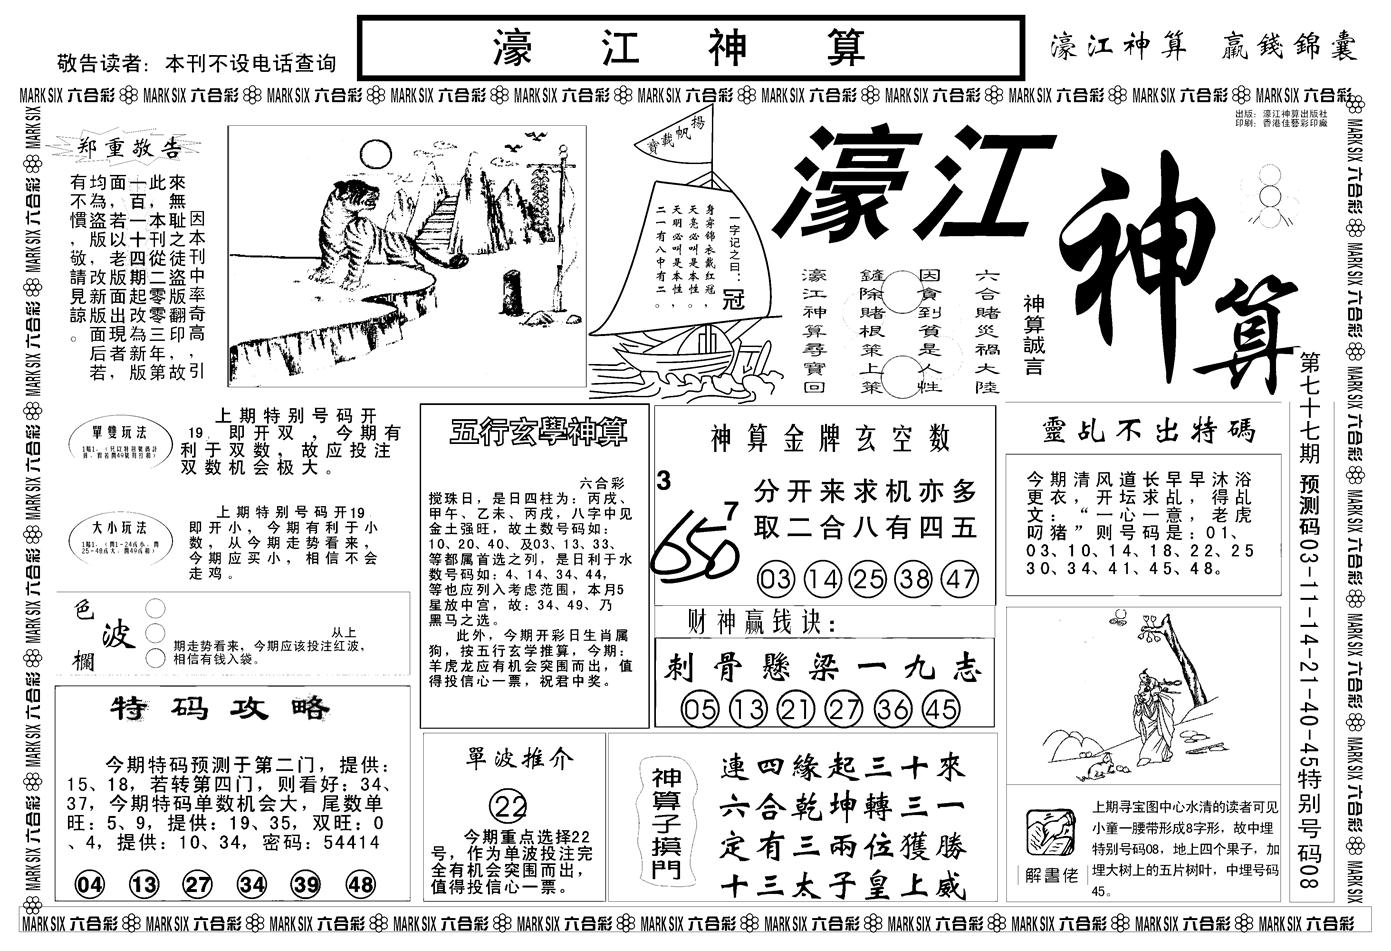 敬告读者：本刊不设电话查询
濠 江 神 算
濠江神算 贏錢錦囊
MARK SIX 六合彩 MARK SIX 六合彩 MARK SIX 六合彩 MARK SIX 六合彩 MARK SIX 六合彩 MARK SIX 六合彩 MARK SIX 六合彩 MARK SIX 六合彩 MARK SIX 六合彩 MARK SIX 六合彩 MARK SIX 六合彩
出版：濠江神算出版社
印刷：香港佳藝彩印廠
郑重敬告
因本刊中率奇高，引
來無恥之徒盜版翻印，故
此，本刊從二零零三年第
一百一十四期起改為新版
面，若以老版面出現者，
均為盜版，改新版面后若
有不慣，敬請見諒。
揚帆載寶
一字记之曰：冠
身穿錦衣戴红冠，
天亮必叫是本性，
天明必叫是本性。
二一有八中有二。
濠江
神
算
六合賭災禍大陸
因貪到貧是人性
鏟除賭根策上策
濠江神算尋寶回
神算誠言
第七十七期 预测码03-11-14-21-40-45特别号码08
單雙玩法
上期特别号码开
19. 即开双，今期有
利于双数，故应投注
双数机会极大。
大小玩法
上期特别号码开19.
即开小，今期有利于小
数，从今期走势看来，
今期应买小，相信不会
走鸡。
色波欄
从上
期走势看来，今期应该投注红波，
相信有钱入袋。
特码攻略
今期特码预测于第二门，提供：
15、18，若转第四门，则看好：34、
37，今期特码单数机会大，尾数单
旺：5、9，提供：19、35，双旺：0
、4，提供：10、34，密码：54414
04 13 27 34 39 48
五行玄學神算
六合彩
搅珠日，是日四柱为：丙戌、
甲午、乙未、丙戌，八字中见
金土强旺，故土数号码如：
10、20、40、及03、13、33、
等都属首选之列，是日利于水
数号码如：4、14、34、44，
等也应列入考虑范围，本月5
星放中宫，故：34、49、乃
黑马之选。
此外，今期开彩日生肖属
狗，按五行玄学推算，今期：
羊虎龙应有机会突围而出，值
得投信心一票，祝君中奖。
單波推介
22
今期重点选择22
号，作为单波投注完
全有机会突围而出，
值得投信心一票。
神算金牌玄空数
3
7
650
分开来求机亦多
取二合八有四五
03 14 25 38 47
财神赢钱诀：
刺骨懸梁一九志
05 13 21 27 36 45
神算子摸門
連四緣起三十來
六合乾坤轉三一
定有三兩位獲勝
十三太子皇上威
靈乩不出特碼
今期清风道长早早沐浴
更衣，开坛求乩，得乩
文：“一心一意，老虎
叨猪”则号码是：01、
03、10、14、18、22、25
30、34、41、45、48。
解畫佬
上期寻宝图中心水清的读者可见
小童一腰带形成8字形，故中埋
特别号码08，地上四个果子，加
埋大树上的五片树叶，中埋号码
45。
MARK SIX 六合彩 MARK SIX 六合彩 MARK SIX 六合彩 MARK SIX 六合彩 MARK SIX 六合彩 MARK SIX 六合彩 MARK SIX 六合彩 MARK SIX 六合彩 MARK SIX 六合彩 MARK SIX 六合彩 MARK SIX 六合彩